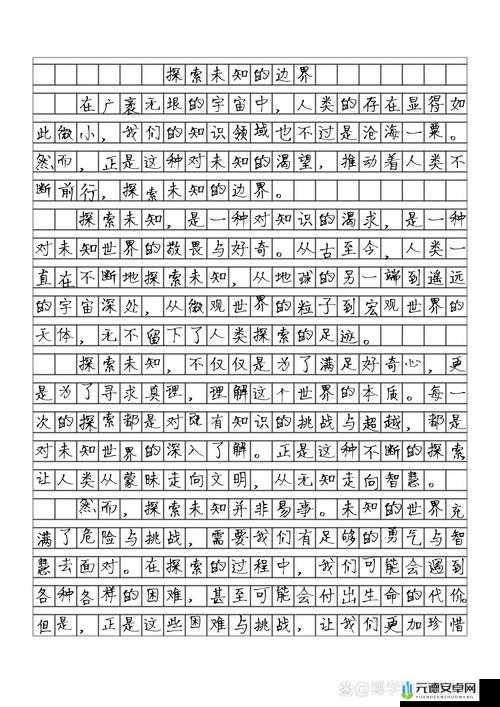 探索未知的边界
在广袤无垠的宇宙中，人类的存在显得如
此微小，我们的知识领域也不过是沧海一粟。
然而，正是这种对未知的渴望，推动着人类不
断前行，探索未知的边界。
探索未知，是一种对知识的渴求，是一种
对未知世界的敬畏与好奇。从古至今，人类一
直在不断地探索未知，从地球的另一端到遥远
的宇宙深处，从微观世界的粒子到宏观世界的
天体，无不留下了人类探索的足迹。
探索未知，不仅仅是为了满足好奇心，更
是为了寻求真理，理解这个世界的本质。每一
次的探索都是对既有知识的挑战与超越，都是
对未知世界的深入了解。正是这种不断的探索
让人类从蒙昧走向文明，从无知走向智慧。
然而，探索未知并非易事。未知的世界充
满了危险与挑战，需要我们有足够的勇气与智
慧去面对。在探索的过程中，我们可能会遇到
各种各样的困难，甚至可能会付出生命的代价。
但是，正是这些困难与挑战，让我们更加珍惜
元德安卓网